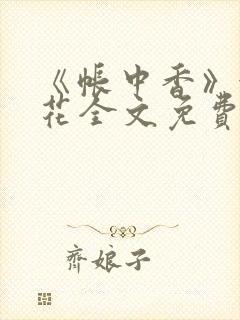 《帐中香》
花全文免費
齊娘子